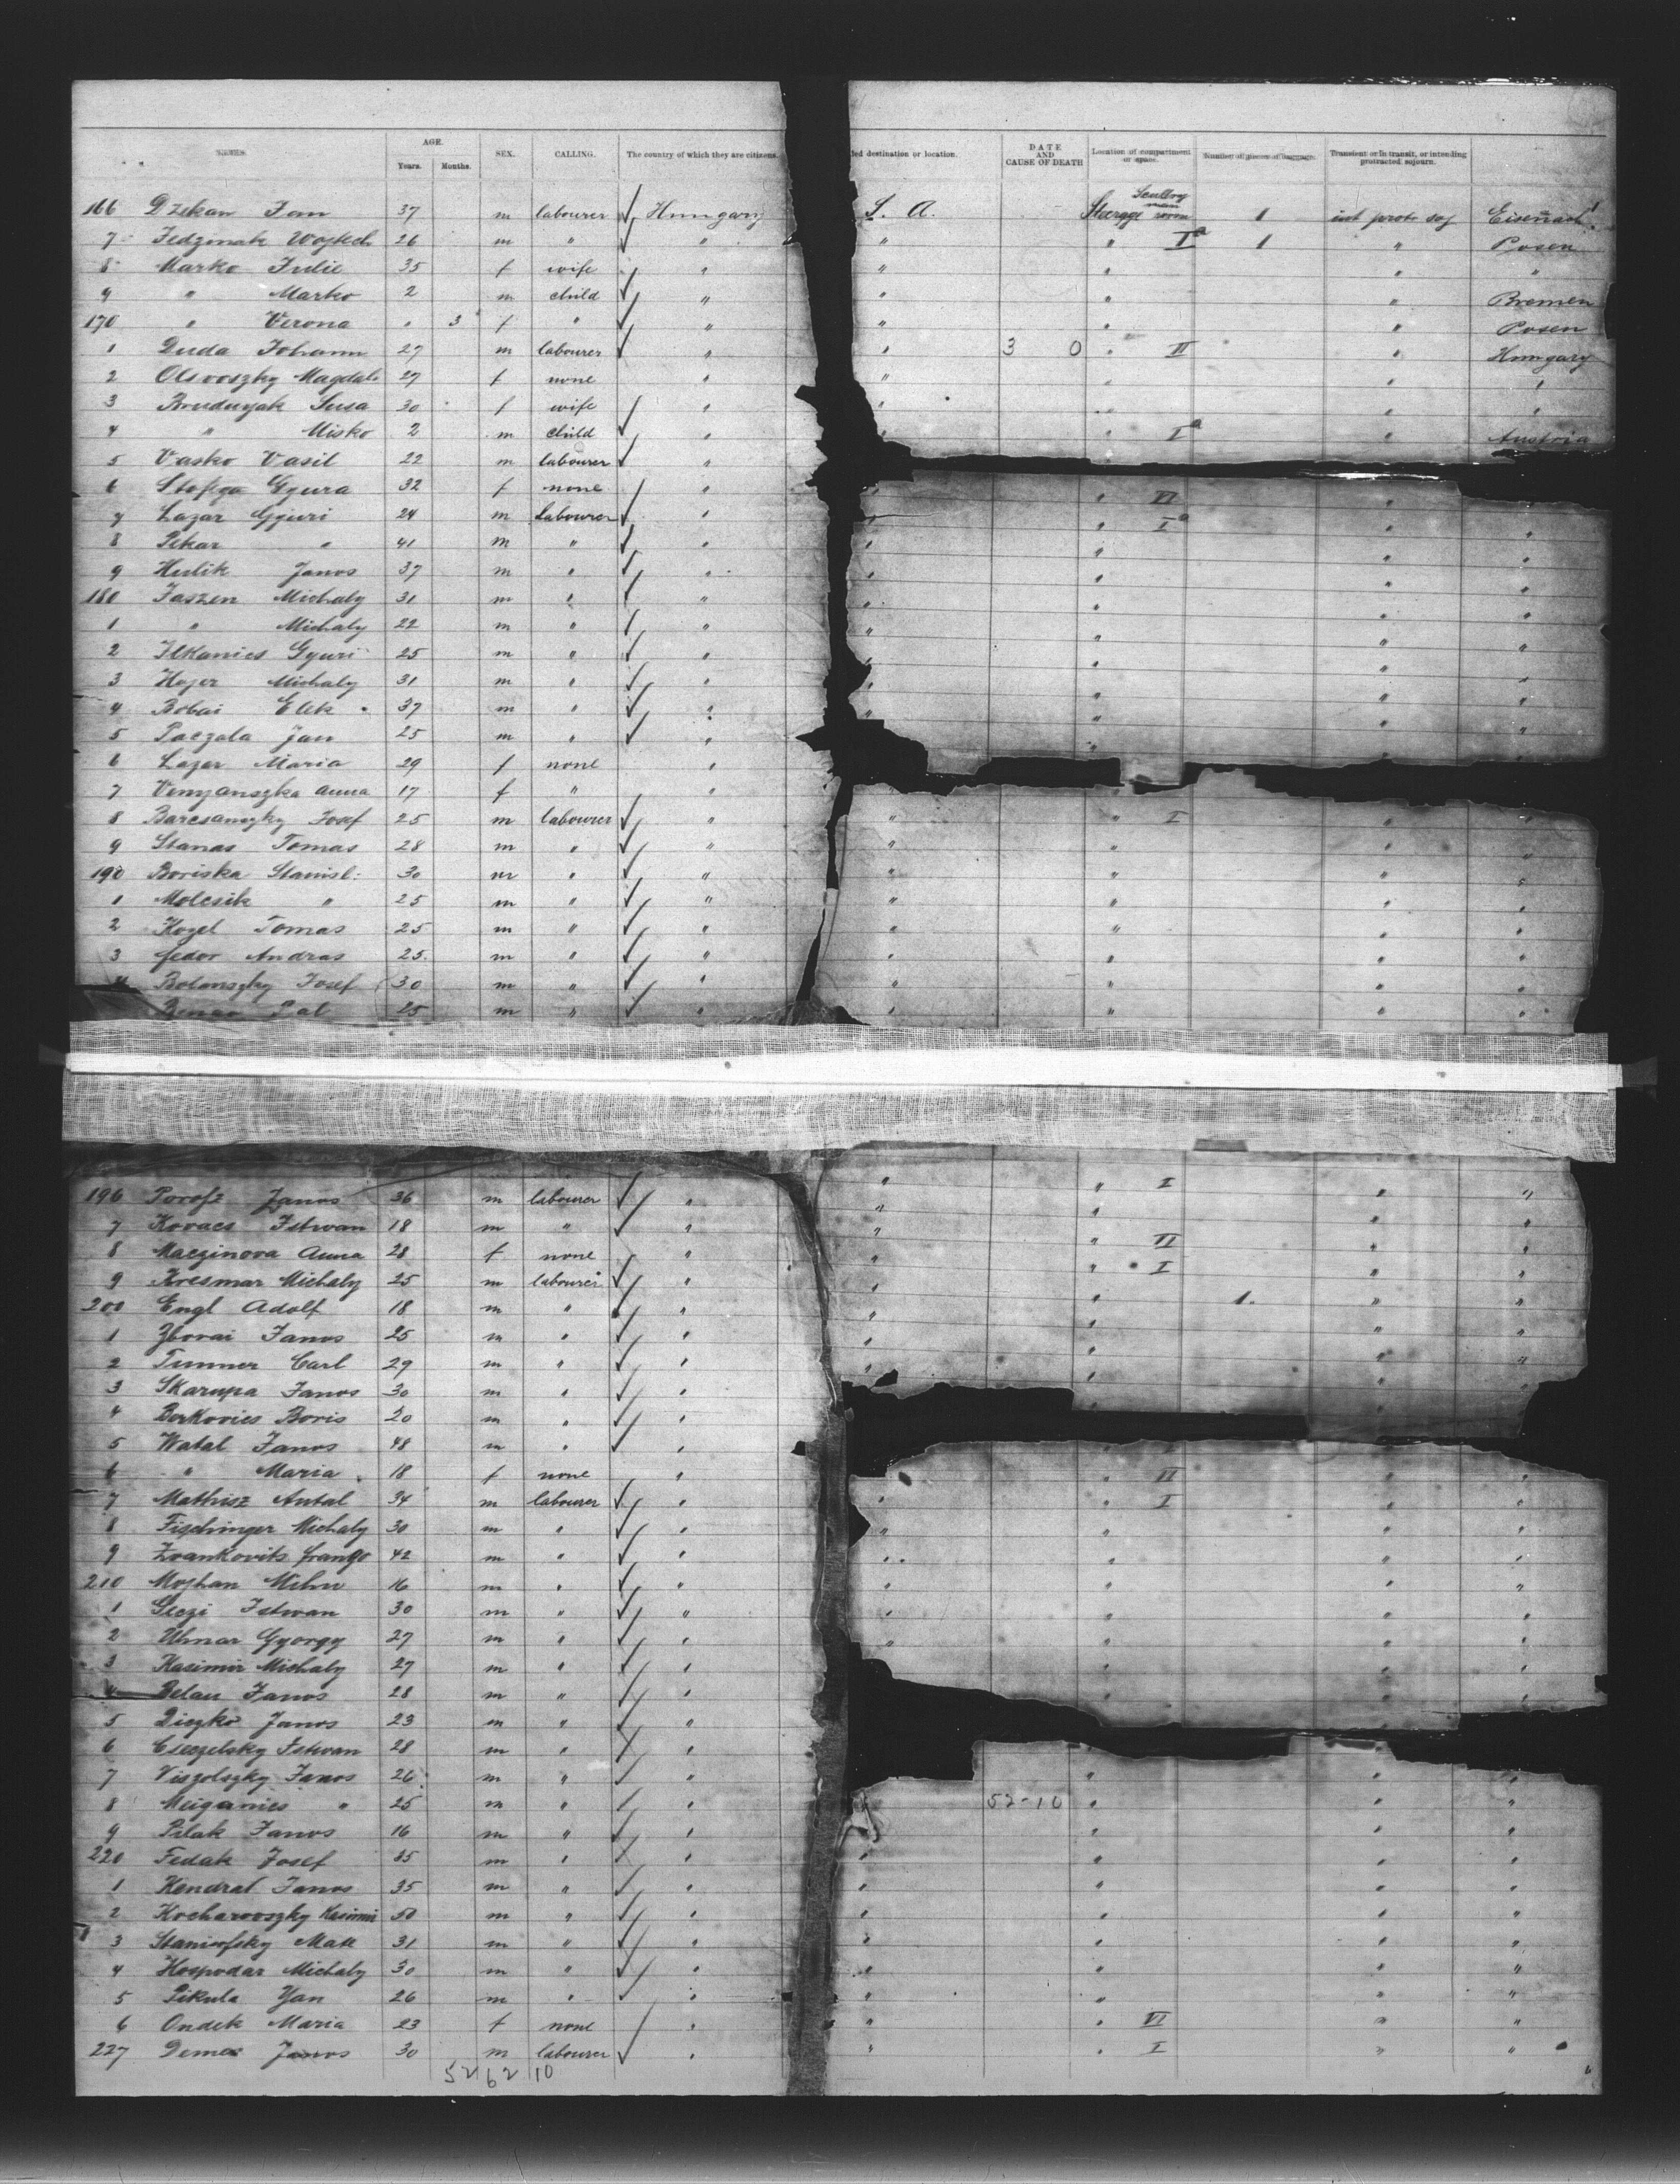 NAMES. AGE. Years. Months. SEX. CALLING. The country of which they are citizens. ded destination or location. DATE AND CAUSE OF DEATH Location of compartment or space. Number of pieces of baggage. Transient or In transit, or intending protracted sojourn.
166 Dzekan Jan 37 m labourer ✓ Hungary S. A. Steerage room 1 int prot soj Eisenach
7 Fedzenak Wojtech 26 m " ✓ " " " Ia 1 " Posen
8 Marko Julie 35 f wife " " " " "
9 " Marko 2 m child ✓ " " " " Bremen
170 " Verona " 3 f " ✓ " " " " Posen
1 Duda Johann 27 m labourer ✓ " " 3 0 " II " Hungary
2 Olsvoszky Magdal. 27 f none " " " " "
3 Brudnyak Susa 30 f wife " " " " "
4 " Misko 2 m child ✓ " " " Ia " Austria
5 Vasko Vasil 22 m labourer ✓ "
6 Stofiga Gyura 32 f none " " " VI "
7 Lazar Gyuri 24 m labourer ✓ " " " Ia " "
8 Pekar " 41 m " ✓ " " " " "
9 Hulik Janos 37 m " ✓ " " " " "
180 Jaszen Michaly 31 m " ✓ " " " " "
1 " Michaly 22 m " ✓ " " " " "
2 Ilkanics Gyuri 25 m " ✓ " " " " "
3 Hojer Michaly 31 m " ✓ " " " " "
4 Bobai Elek 37 m " ✓ " " " " "
5 Paczala Jan 25 m " ✓ " " "
6 Lazar Maria 29 f none "
7 Venyanszka Anna 17 f " "
8 Barcsanszky Josef 25 m labourer ✓ " " " I " "
9 Stanas Tomas 28 m " ✓ " " " " "
190 Boriska Stanisl. 30 m " ✓ " " " " "
1 Molcsik " 25 m " ✓ " " " " "
2 Kozel Tomas 25 m " ✓ " " " " "
3 Fedor Andras 25 m " ✓ " " " " "
4 Bolanszky Josef 30 m " ✓ " " " " "
Pal 25 m " ✓ " " " " "
196 Porosz Janos 36 m labourer ✓ " " " I " "
7 Kovacs Istwan 18 m " ✓ " " " " "
8 Maczinova Anna 28 f none " " " VI " "
9 Kresmar Michaly 25 m labourer ✓ " " " I " "
200 Engl Adolf 18 m " ✓ " " " 1. " "
1 Zborai Janos 25 m " ✓ " " " " "
2 Tunner Carl 29 m " ✓ " " " " "
3 Skarupa Janos 30 m " ✓ " " " "
4 Berkovics Boris 20 m " ✓ "
5 Watal Janos 48 m " ✓ "
6 " Maria 18 f none " " VI " "
7 Mathisz Antal 34 m labourer ✓ " " " I " "
8 Fischinger Michaly 30 m " ✓ " " " " "
9 Zvankovits 42 m " ✓ " " " " "
210 Moshan Mihu 16 m " ✓ " " " " "
1 Geczi Istwan 30 m " ✓ " " " " "
2 Uhnar Gyorgy 27 m " ✓ " " " " "
3 Kasimir Michaly 27 m " ✓ " " " "
4 Belan Janos 28 m " ✓ " " " "
5 Diczko Janos 23 m " ✓ "
6 Cseczelsky Istwan 28 m " ✓ "
7 Viszolszky Janos 26 m " ✓ " " " "
8 Meiganics " 25 m " ✓ " 52-10 " " "
9 Pilak Janos 16 m " ✓ " " " "
220 Fedak Josef 35 m " ✓ " " " " "
1 Kendral Janos 35 m " ✓ " " " " "
2 Kocharovszky Kasimir 50 m " ✓ " " " " "
3 Stanisofsky 31 m " ✓ " " " " "
4 Hospodar Michaly 30 m " ✓ " " " " "
5 Pikula Yan 26 m " ✓ " " " " "
6 Ondek Maria 23 f none " " " VI " "
227 Demes Janos 30 m labourer ✓ " " " I " "
52 62 10